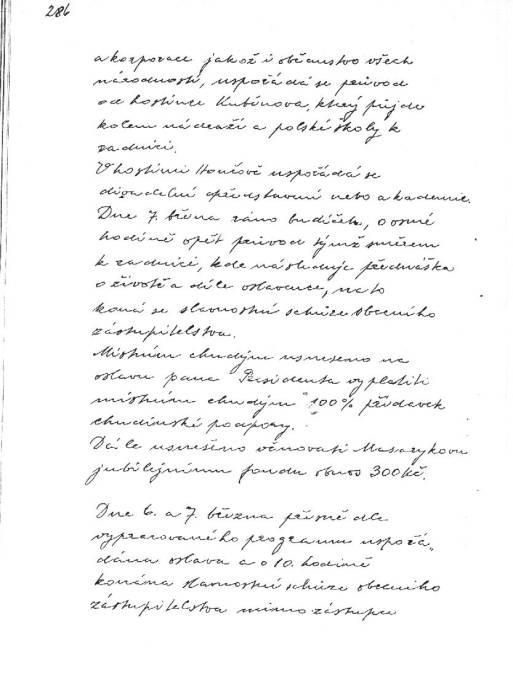 286
a korporace jakož i občanstvo všech
národností, uspořádá se průvod
od hostince Kuběnova, který půjde
kolem nádraží a polské školy k
radnici.
V hostinci Hončově uspořádá se
divadelní představení nebo akademie.
Dne 7. března ráno budíček, o osmé
hodině opět průvod týmž směrem
k radnici, kde následuje přednáška
o životě a díle oslavence, na to
koná se slavnostní schůze obecního
zástupitelstva.
Místním chudým usneseno na
oslavu pana Presidenta vyplatiti
místním chudým 100% přídavek
chudinské podpory.
Dále usnešeno věnovati Masarykovu
jubilejnímu fondu obnos 300 Kč.
Dne 6. a 7. března přesně dle
vypracovaného programu uspořá„
dána oslava a o 10. hodině
konána slavnostní schůze obecního
zástupitelstva mimo zástupce